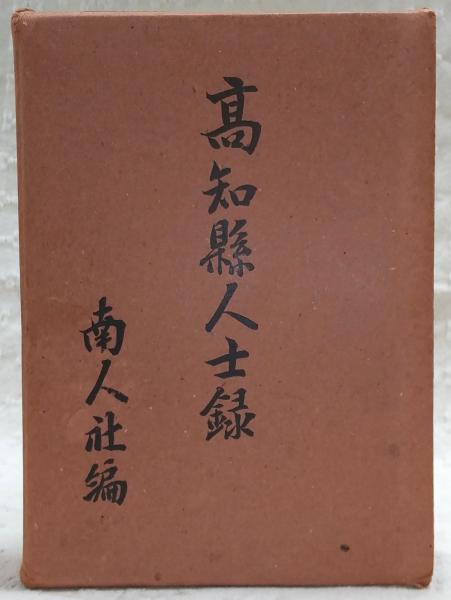 髙知縣人士録
南人社編